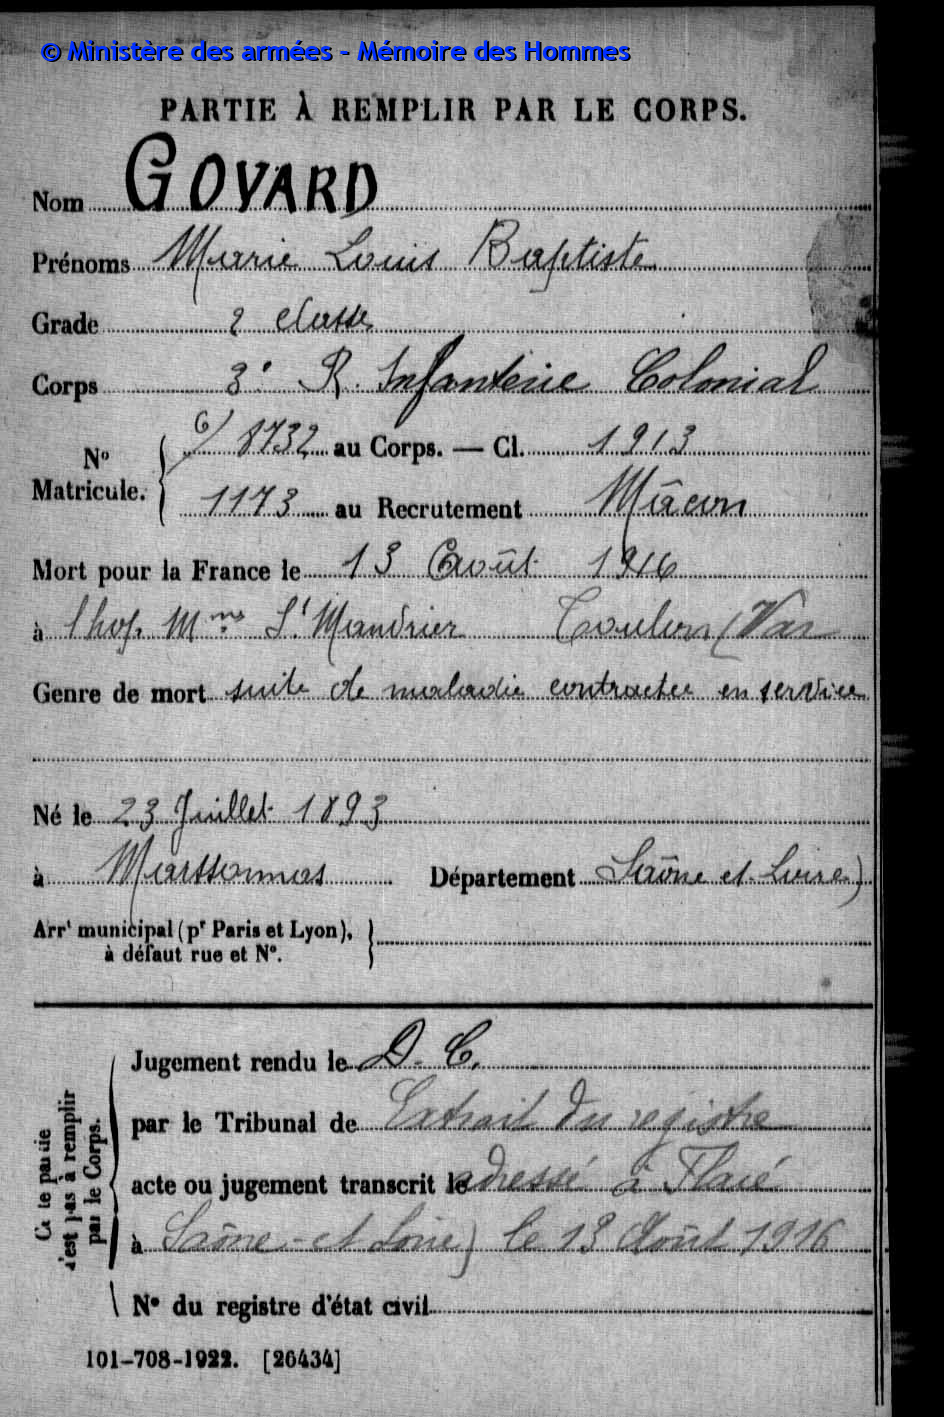 © Ministère des armées - Mémoire des Hommes
PARTIE À REMPLIR PAR LE CORPS.
Nom GOYARD
Prénoms Marie Louis Baptiste
Grade 2 classe
Corps 3e R. Infanterie Colonial
Nº Matricule. { 6/ 8732 au Corps. — Cl. 1913
1173 au Recrutement Mâcon
Mort pour la France le 13 Août 1916
à l'hop. Mne St Mandrier Toulon (Var
Genre de mort suite de maladie contractée en service
Né le 23 Juillet 1893
à Département Saône et Loire)
Arrt municipal (pr Paris et Lyon), à défaut rue et Nº. }
Cette partie n'est pas à remplir par le Corps.
Jugement rendu le D. C.
par le Tribunal de Extrait du registre
acte ou jugement transcrit le adressé à Flacé
à Saône-et Loire) le 13 Août 1916
Nº du registre d'état civil
101-708-1922. [26434]